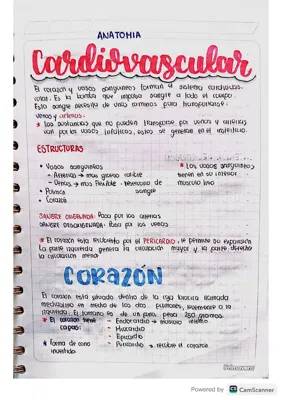 ANATOMIA
Cardiovascular
El corazón y vasos sanguíneos forman el sistema cardiovas-
cular. Es la bomba que impulsa sangre a todo el cuerpo.
Esta sangre necesita de unos caminos para transportarse:
venas y arterias.
* Las sustancias que no pueden transportarse por venas y arterias
van por los vasos linfáticos, estos se generan en el intersticio.
ESTRUCTURAS
• Vasos sanguíneos
- Arterias → mas grueso calibre
- Venas → mas flexible - reservorio de sangre
• Bomba
• Corazón
* Los vasos sanguíneos
tienen en su interior
musculo liso
SANGRE OXIGENADA: Pasa por las arterias
SANGRE DESOXIGENADA: Pasa por las venas
* El corazón está recubierto por el PERICARDIO, le permite su expansión
La parte izquierda genera la circulación mayor y la parte derecha
la circulación menor
CORAZÓN
El corazón está situado dentro de la caja torácica llamada
mediastino en medio de los dos pulmones, levemente a la
izquierda. El tamaño es de un puño, pesa 250 gramos.
* El corazón tiene capas:
- Endocardio → musculo interno
- Miocardio
- Epicardio
- Pericardio → recubre el corazón
* forma de cono
invertido
Powered by CS CamScanner